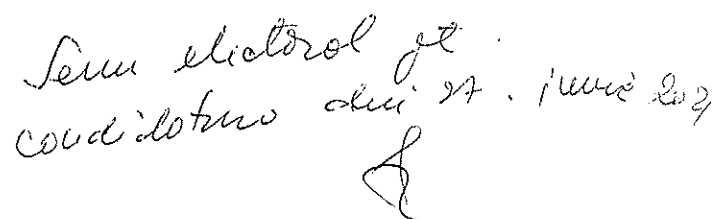 Semn electoral pt.
candidatura din 27. iunie 202